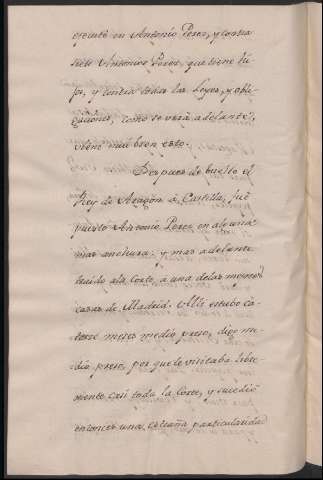 en Antonio Perez, y contra
siete Antonios Perez, que tiene hi-
jos, y contra todas las Leyes, y obli-
gaciones, como se verá adelante,
viene muí bien esto.
Despues de buelto el
Rey de Aragón á Castilla, fué
puesto Antonio Perez en alguna
mas anchura: y mas adelante
traido ala Corte, a una delas mejores
casas de Madrid. Alli estubo ca-
torse meses medio preso, digo me-
dio preso, por que le visitaba libre-
mente casi toda la Corte, y sucedió
entonces una estraña particularidad